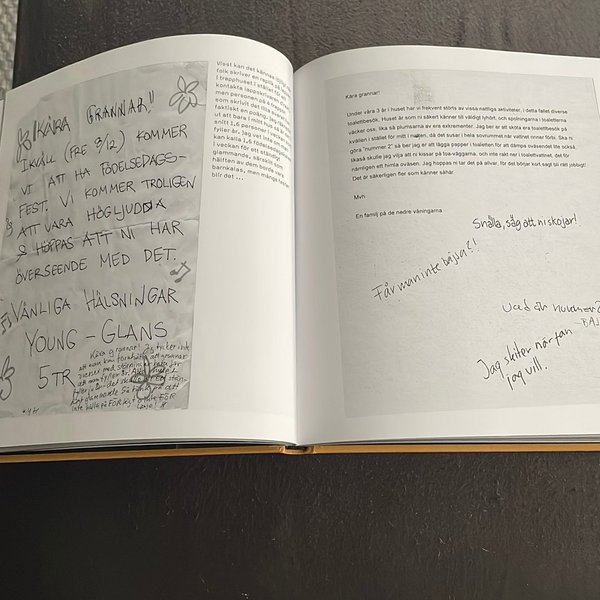 KÄRA GRANNAR!!
IKVÄLL (FRE 9/12) KOMMER
VI ATT HA FÖDELSEDAGS-
FEST. VI KOMMER TROLIGEN
ATT VARA HÖGLJUDDA
& HOPPAS ATT NI HAR
ÖVERSEENDE MED DET.
VÄNLIGA HÄLSNINGAR
YOUNG-GLANS
5TR
Kära grannar! Jag tycker inte
Visst kan det kännas
folk skriver en replik på
i trapphuset i stället för
kontakta lappskrivaren
men personen på
som skrivit det
faktiskt en poäng.
ut att bara i mitt
snitt 1,6 personer
fyller år. Jag vet inte om
kan kalla 1,6 födelsedagar
i veckan för ett ständigt
glammande, särskilt om
hälften av dem borde vara
barnkalas, men många
blir det ...
Kära grannar!
Under våra 3 år i huset har vi frekvent störts av vissa nattliga aktiviteter, i detta fallet diverse
toalettbesök. Huset är som ni säkert känner till väldigt lyhört, och spolningarna i toaletterna
väcker oss, lika så plumsarna av era extrementer. Jag ber er att sköta era toalettbesök på
kvällen i stället för mitt i natten, då det susar i hela sovrummet när vattnet rinner förbi. Ska ni
göra "nummer 2" så ber jag er att lägga papper i toaletten för att dämpa oväsendet lite också,
likaså skulle jag vilja att ni kissar på toa-väggarna, och inte rakt ner i toalettvattnet, det för
nämligen ett himla oväsen. Jag hoppas ni tar det på allvar, för det börjar kort sagt bli rätt jobbigt!
Det är säkerligen fler som känner såhär.
Mvh
En familj på de nedre våningarna
Snälla, säg att ni skojar!
Får man inte bajsa?!
Vad är nummer 2
Jag skiter när fan
jag vill.